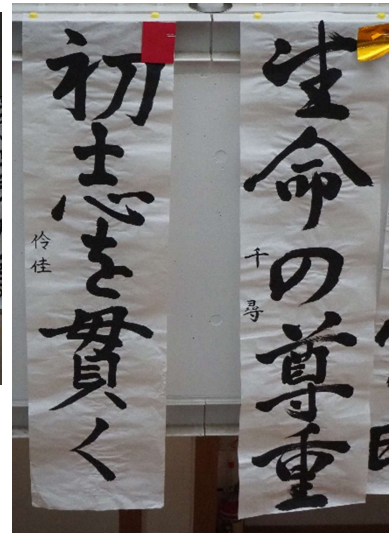 生命の尊重
千尋
初志を貫く
伶佳